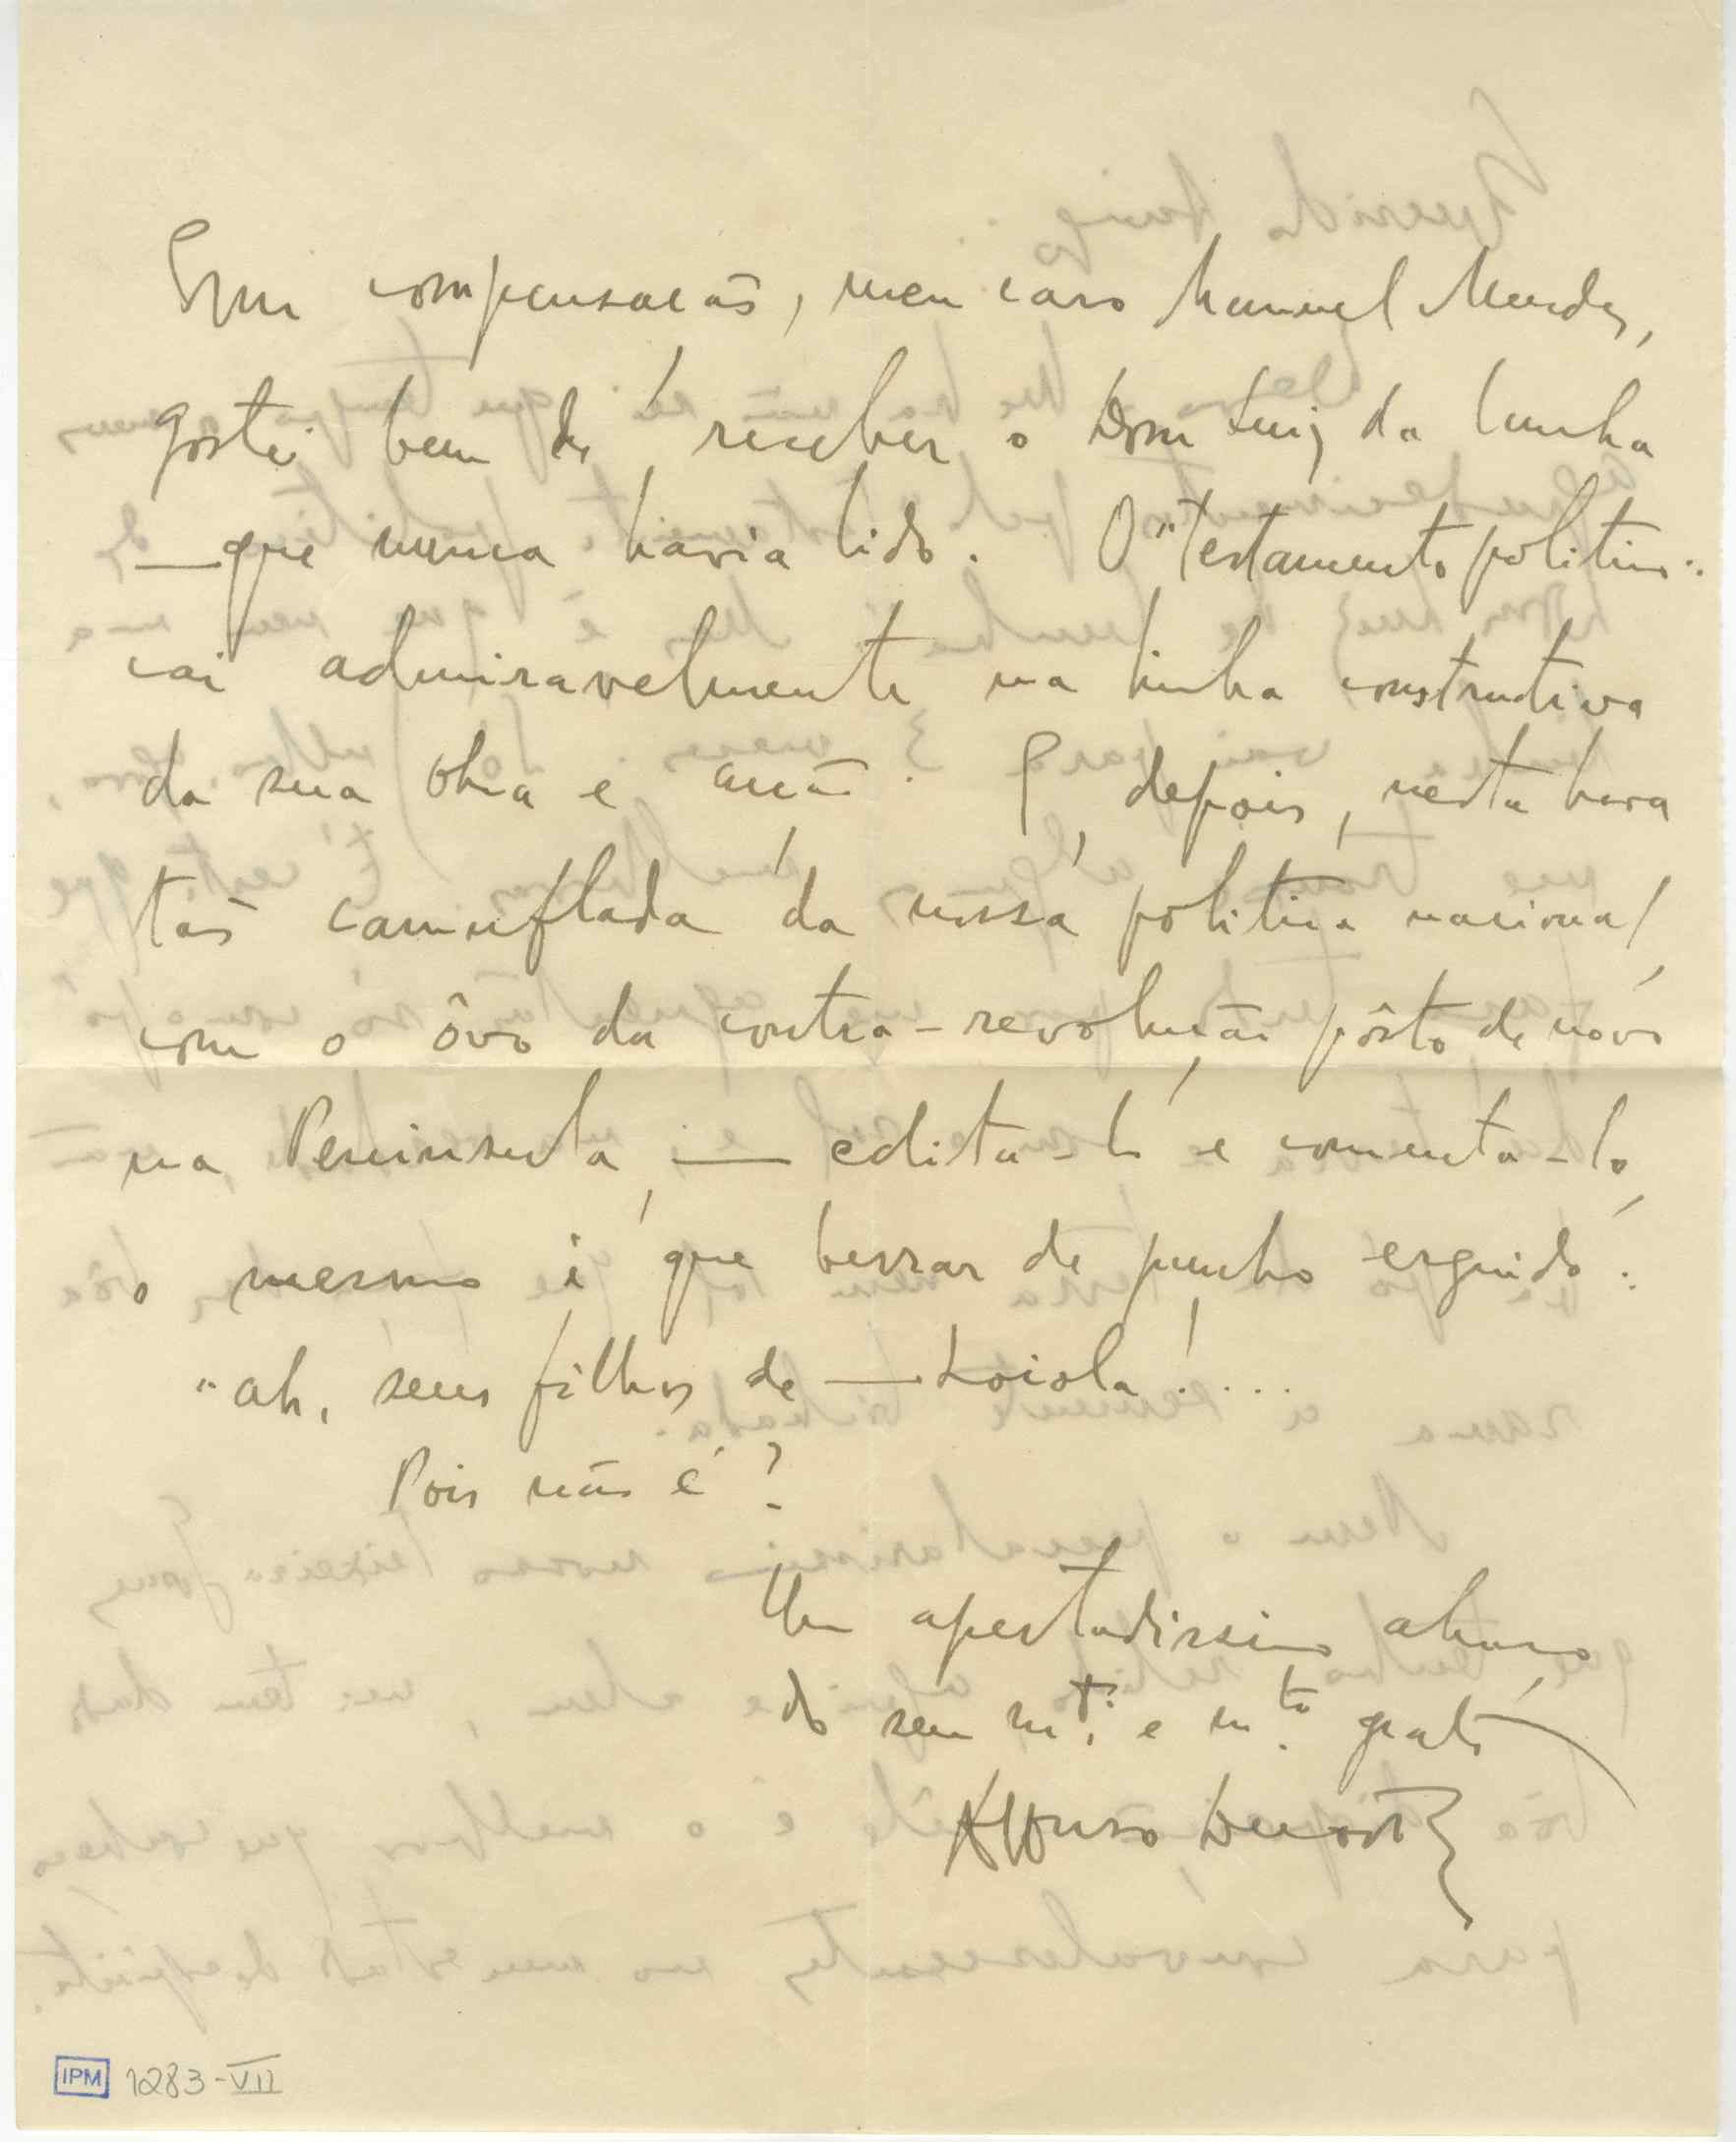 Em compensação, meu caro Manuel Mendes,
gostei bem de receber o Dom Luiz da Cunha
— que nunca havia lido. O "Testamento politico"
cai admiravelmente na linha constructiva
da sua obra e acção. E, depois, nesta hora
tão camuflada da nossa politica nacional,
com o ôvo da contra-revolução pôsto de nôvo
na Peninsula, — edita-lo e comenta-lo,
o mesmo é que berrar de punho erguido:
"ah, seus filhos de — Loiola!...
Pois não é?
Um apertadissimo abraço
do seu mto. e mto. grato
Affonso Duarte
IPM 1283-VII